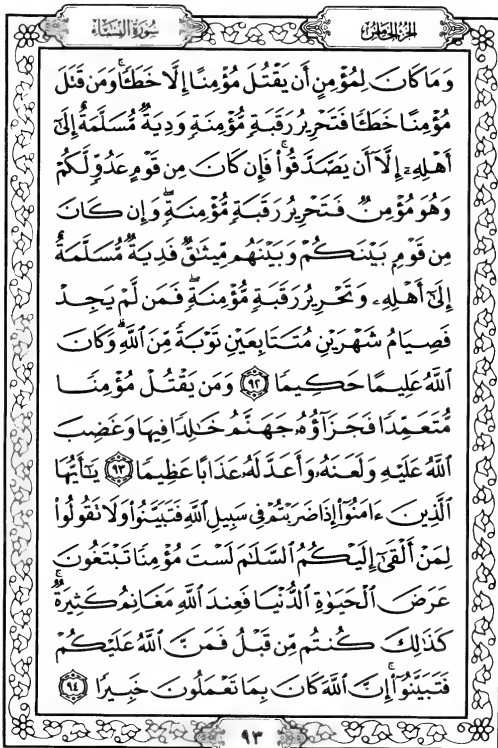 سُورَةُ النِّسَاءِ
الجُزءُ الخَامِسُ
وَمَا كَانَ لِمُؤْمِنٍ أَن يَقْتُلَ مُؤْمِنًا إِلَّا خَطَـًٔا ۚ وَمَن قَتَلَ
مُؤْمِنًا خَطَـًٔا فَتَحْرِيرُ رَقَبَةٍ مُّؤْمِنَةٍ وَدِيَةٌ مُّسَلَّمَةٌ إِلَىٰٓ
أَهْلِهِۦٓ إِلَّآ أَن يَصَّدَّقُوا۟ ۚ فَإِن كَانَ مِن قَوْمٍ عَدُوٍّ لَّكُمْ
وَهُوَ مُؤْمِنٌ فَتَحْرِيرُ رَقَبَةٍ مُّؤْمِنَةٍ ۖ وَإِن كَانَ
مِن قَوْمٍۭ بَيْنَكُمْ وَبَيْنَهُم مِّيثَـٰقٌ فَدِيَةٌ مُّسَلَّمَةٌ
إِلَىٰٓ أَهْلِهِۦ وَتَحْرِيرُ رَقَبَةٍ مُّؤْمِنَةٍ ۖ فَمَن لَّمْ يَجِدْ
فَصِيَامُ شَهْرَيْنِ مُتَتَابِعَيْنِ تَوْبَةً مِّنَ ٱللَّهِ ۗ وَكَانَ
ٱللَّهُ عَلِيمًا حَكِيمًا ٩٢ وَمَن يَقْتُلْ مُؤْمِنًا
مُّتَعَمِّدًا فَجَزَآؤُهُۥ جَهَنَّمُ خَـٰلِدًا فِيهَا وَغَضِبَ
ٱللَّهُ عَلَيْهِ وَلَعَنَهُۥ وَأَعَدَّ لَهُۥ عَذَابًا عَظِيمًا ٩٣ يَـٰٓأَيُّهَا
ٱلَّذِينَ ءَامَنُوٓا۟ إِذَا ضَرَبْتُمْ فِى سَبِيلِ ٱللَّهِ فَتَبَيَّنُوا۟ وَلَا تَقُولُوا۟
لِمَنْ أَلْقَىٰٓ إِلَيْكُمُ ٱلسَّلَـٰمَ لَسْتَ مُؤْمِنًا تَبْتَغُونَ
عَرَضَ ٱلْحَيَوٰةِ ٱلدُّنْيَا فَعِندَ ٱللَّهِ مَغَانِمُ كَثِيرَةٌ ۚ
كَذَٰلِكَ كُنتُم مِّن قَبْلُ فَمَنَّ ٱللَّهُ عَلَيْكُمْ
فَتَبَيَّنُوٓا۟ ۚ إِنَّ ٱللَّهَ كَانَ بِمَا تَعْمَلُونَ خَبِيرًا ٩٤
٩٣